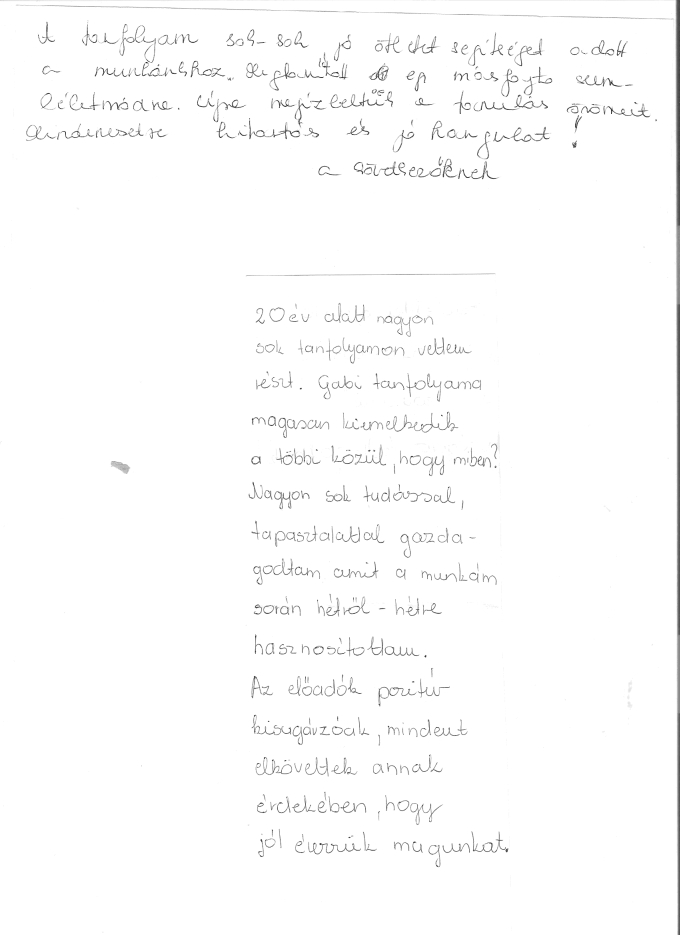 A tanfolyam sok-sok jó ötletet segítséget adott
a munkánkhoz. Megtanított egy másfajta szem-
léletmódra. Újra megízleltük a tanulás örömeit.
Mindenesetre kitartás és jó hangulat!
a
20 év alatt nagyon
sok tanfolyamon vettem
részt. Gabi tanfolyama
magasan kiemelkedik
a többi közül, hogy miben?
Nagyon sok tudással,
tapasztalattal gazda-
godtam amit a munkám
során hétről - hétre
hasznosítottam.
Az előadók pozitív
kisugárzóak, mindent
elkövettek annak
érdekében, hogy
jól érezzük magunkat.